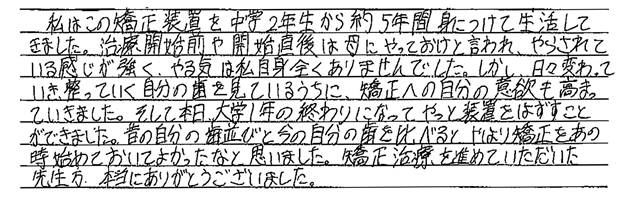 私はこの矯正装置を中学2年生から約5年間身につけて生活して
きました。治療開始前や開始直後は母にやっておけと言われ、やらされて
いる感じが強く、やる気は私自身全くありませんでした。しかし、日々変わって
いき、整っていく自分の歯を見ているうちに、矯正への自分の意欲も高まっ
ていきました。そして本日、大学1年の終わりになってやっと装置をはずすこと
ができました。昔の自分の歯並びと今の自分の歯を比べると、やはり矯正をあの
時始めておいてよかったなと思いました。矯正治療を進めていただいた
先生方、本当にありがとうございました。